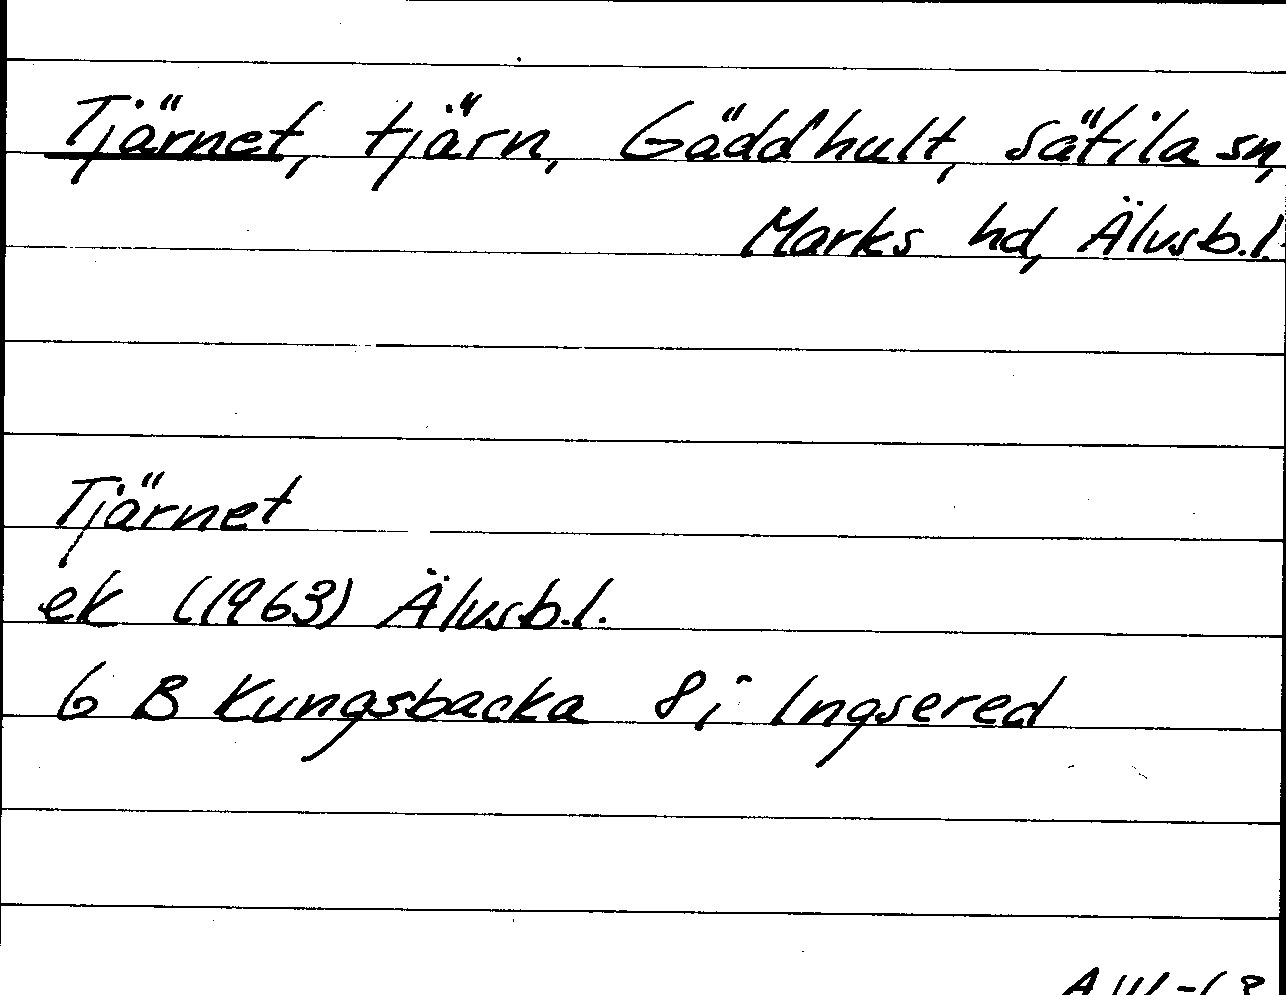 Tjärnet, tjärn, Gäddhult, Sätila sn,
Marks hd, Älvsb.l.
Tjärnet
ek (1963) Älvsb.l.
6 B Kungsbacka 8i Ingsered